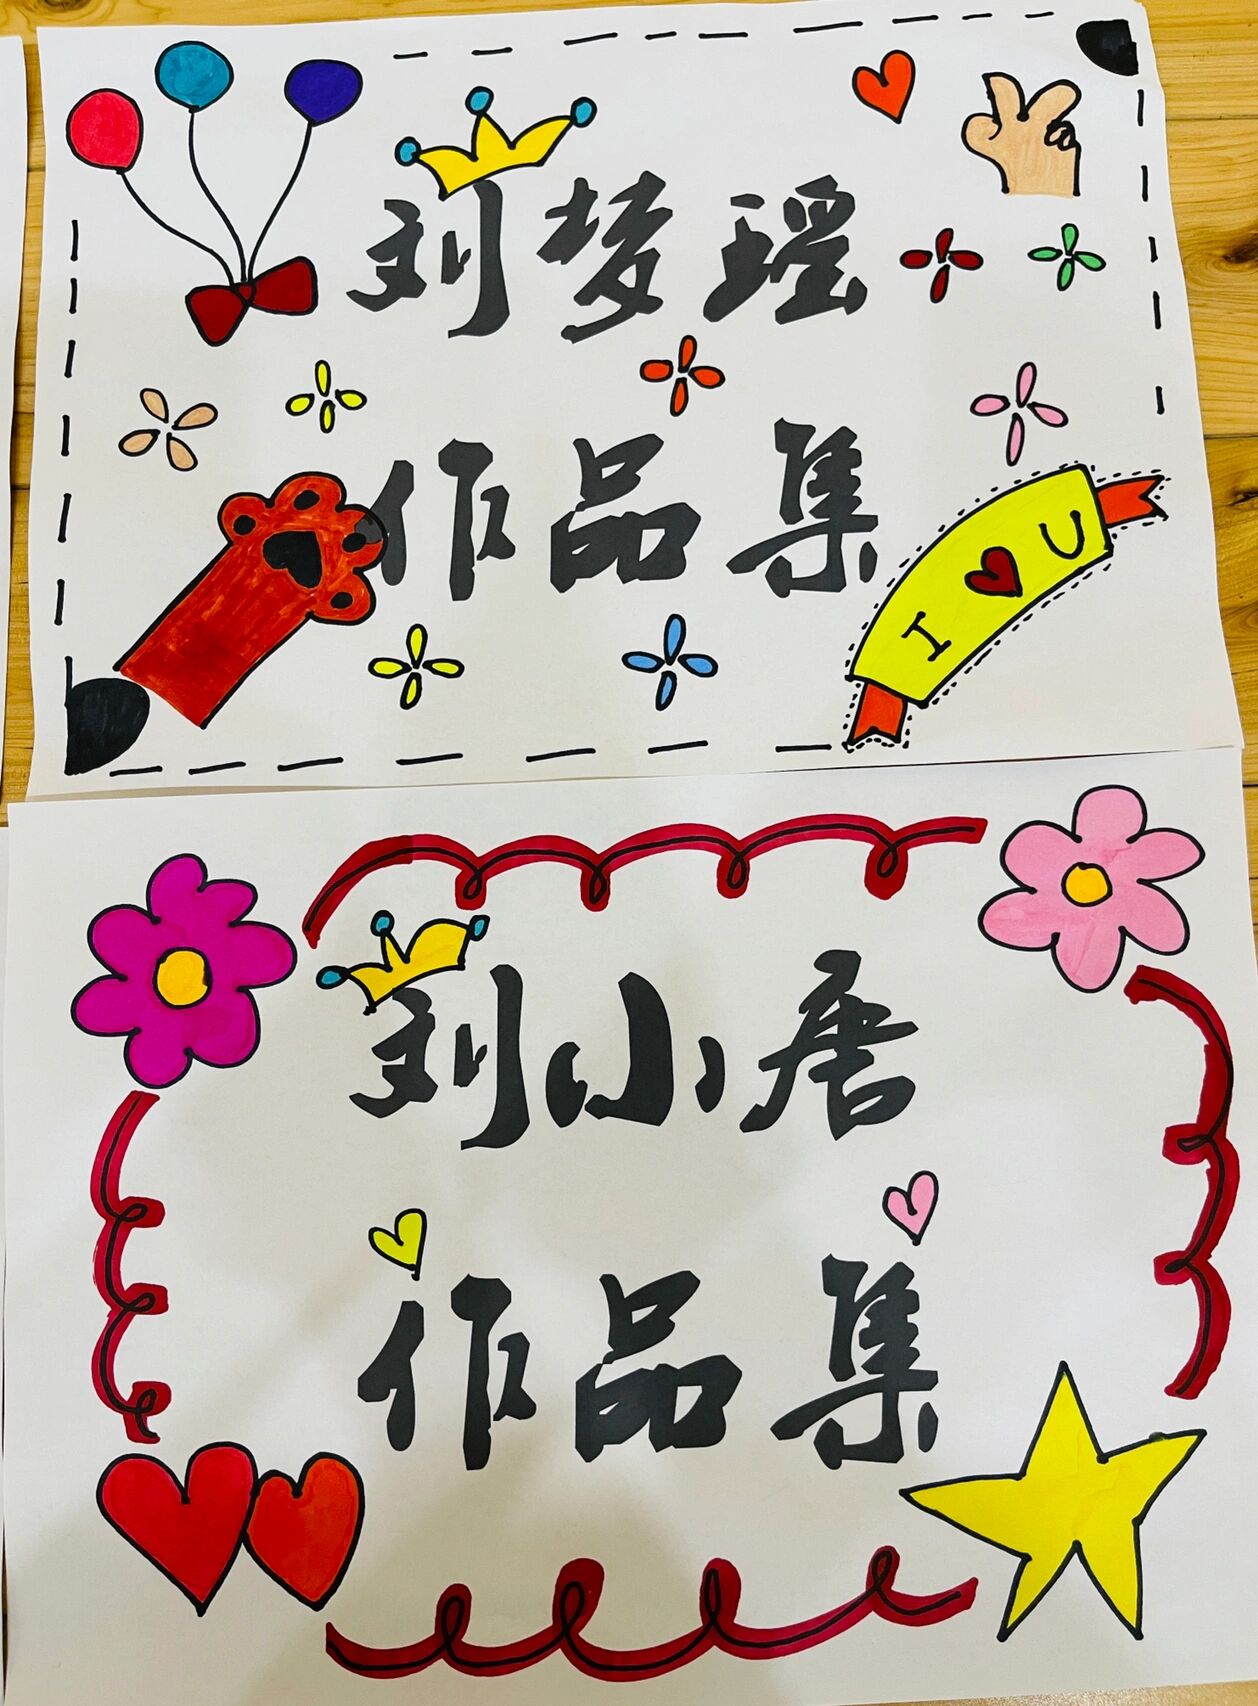 刘梦瑶
作品集
I ❤ U
刘小唐
作品集